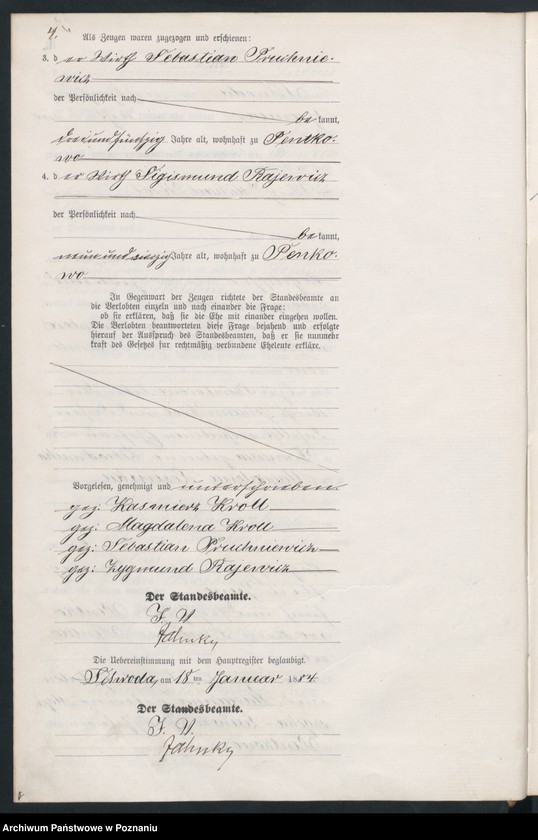 4.
Als Zeugen waren zugezogen und erschienen:
3. der Wirth Sebastian Pruchnie-
wicz
der Persönlichkeit nach
bekannt,
dreiundfünfzig Jahre alt, wohnhaft zu Pentko-
wo
4. der Wirth Sigismund Rajewicz
der Persönlichkeit nach
bekannt,
neunundvierzig Jahre alt, wohnhaft zu Penko-
wo
In Gegenwart der Zeugen richtete der Standesbeamte an
die Verlobten einzeln und nach einander die Frage:
ob sie erklären, daß sie die Ehe mit einander eingehen wollen.
Die Verlobten beantworteten diese Frage bejahend und erfolgte
hierauf der Ausspruch des Standesbeamten, daß er sie nunmehr
kraft des Gesetzes für rechtmäßig verbundene Eheleute erkläre.
Vorgelesen, genehmigt und unterschrieben
gez: Kasmierz Kroll
gez: Magdalena Kroll
gez: Sebastian Pruchniewicz
gez: Zygmund Rajewicz
Der Standesbeamte.
J. V.
Jahnky
Die Uebereinstimmung mit dem Hauptregister beglaubigt.
Schroda, am 18ten Januar 1884
Der Standesbeamte.
J. V.
Jahnky
Archiwum Państwowe w Poznaniu